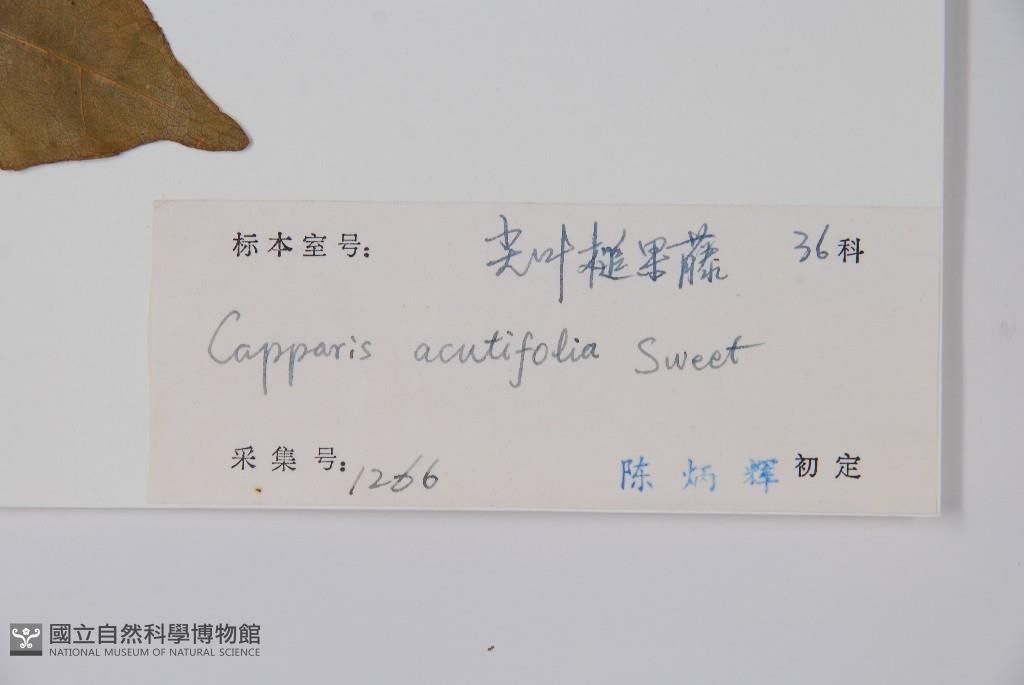 标本室号: 尖叶槌果藤 36科
Capparis acutifolia Sweet
采集号: 1266 陈炳辉 初定
國立自然科學博物館
NATIONAL MUSEUM OF NATURAL SCIENCE